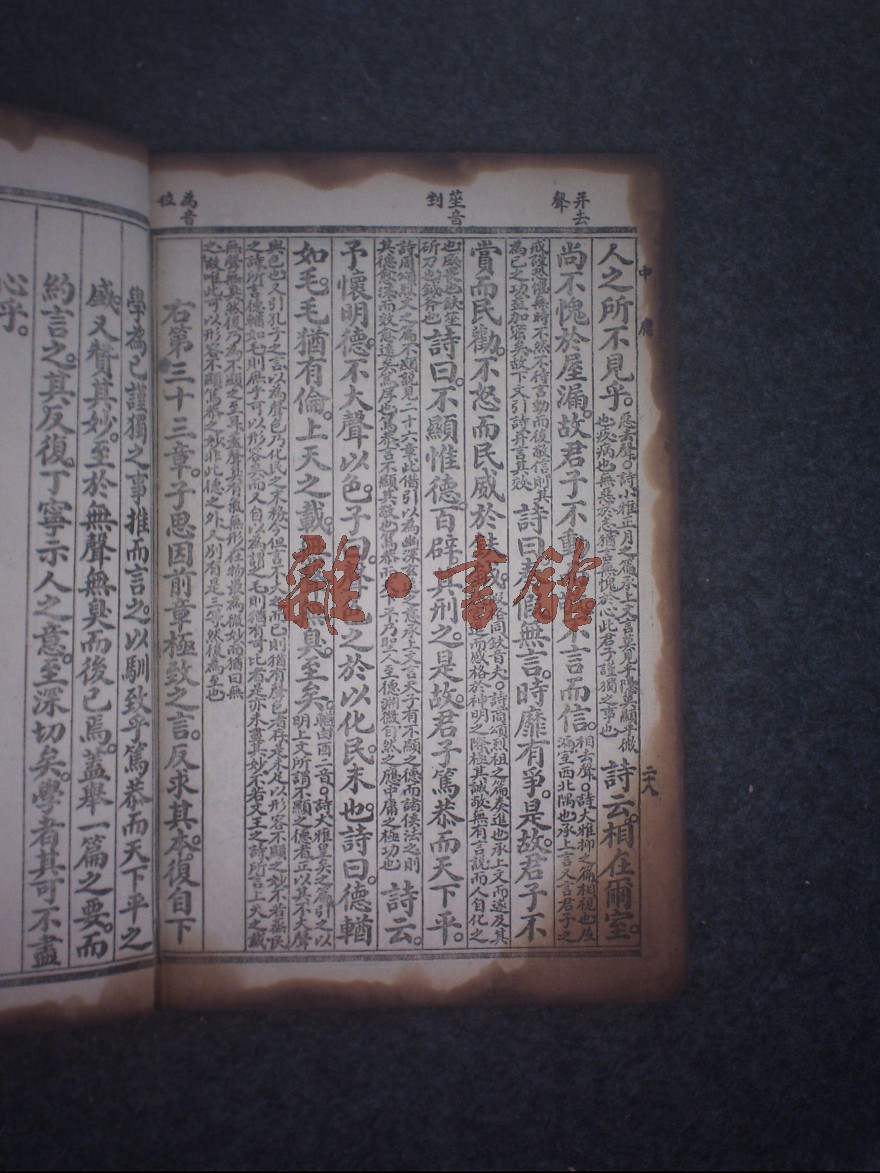 弄去
聲
莝音
剉
為音
位
中庸
二十八
人之所不見乎。惡去聲。詩小雅正月之篇承上文言莫見乎隱莫顯乎微
也疚病也無惡於志猶言無愧於心此君子謹獨之事也詩云。相在爾室。
尚不愧於屋漏。故君子不動而敬。不言而信。相去聲。詩大雅抑之篇相視也屋
漏室西北隅也承上言又言君子之
戒謹恐懼無時不然不待言動而後敬信則其
為己之功益加密矣故下文引詩幷言其效詩曰奏假無言。時靡有爭。是故君子不
賞而民勸。不怒而民威於鈇鉞。格同鈇音夫。詩商頌烈祖之篇奏進也承上文而遂及其
而感格於神明之際極其誠敬無有言說而人自化之
也威畏也鈇莝
斫刀也鉞斧也詩曰。不顯惟德。百辟其刑之。是故君子篤恭而天下平。
詩周頌烈文之篇不顯說見二十六章此借引以為幽深玄遠之意承上文言天子有不顯之德而諸侯法之則
其德愈深而效愈遠矣篤厚也篤恭言不顯其敬也篤恭而天下平乃聖人至德淵微自然之應中庸之極功也詩云。
予懷明德。不大聲以色。子曰。聲色之於以化民。末也。詩曰。德輶
如毛。毛猶有倫。上天之載。無聲無臭。至矣。輶由酉二音。詩大雅皇矣之篇引之以
明上文所謂不顯之德者正以其不大聲
與色也又引孔子之言以為聲色乃化民之末務今但言不大之而已則猶有聲色者存是未足以形容不顯之妙不若烝民
之詩所言德輶如毛則庶乎可以形容矣而又自以為謂之毛則猶有可比者是亦未盡其妙不若文王之詩所言上天之載
無聲無臭然後乃為不顯之至耳蓋聲臭有氣無形在物最為微妙而猶曰無
之故惟此可以形容不顯篤恭之妙非此德之外又別有是三等然後為至也
右第三十三章。子思因前章極致之言。反求其本。復自下
學為己謹獨之事。推而言之。以馴致乎篤恭而天下平之
盛。又贊其妙。至於無聲無臭而後已焉。蓋舉一篇之要。而
約言之。其反復丁寧示人之意。至深切矣。學者其可不盡
心乎。
雜·書館